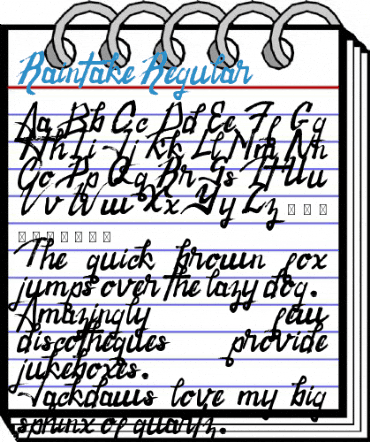 Raintake Regular
Aa Bb Cc Dd Ee Ff Gg
Hh Ii Jj Kk Ll Mm Nn
Oo Pp Qq Rr Ss Tt Uu
Vv Ww Xx Yy Zz
The quick brown fox
jumps over the lazy dog.
Amazingly few
discotheques provide
jukeboxes.
Jackdaws love my big
sphinx of quartz.